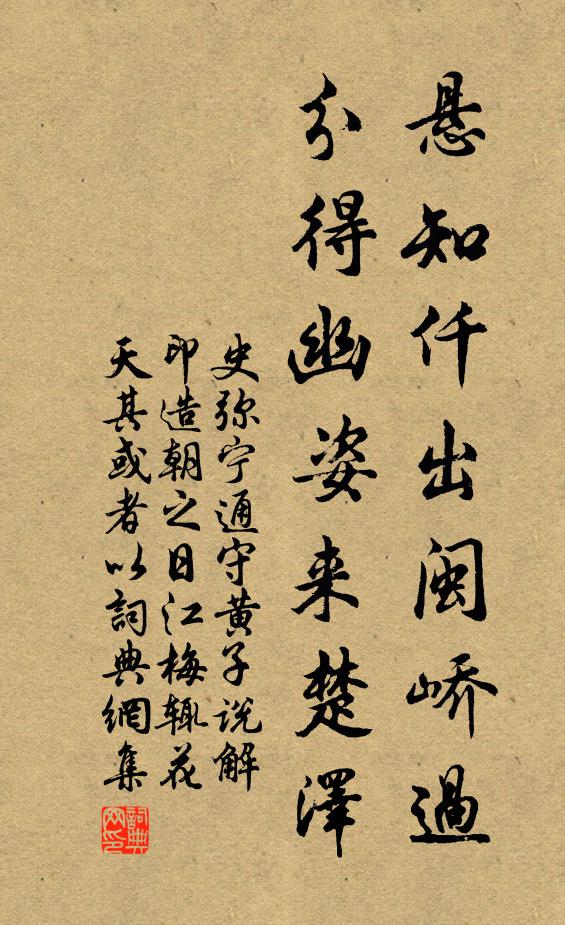 悬知仟出闽峤過
分得幽姿来楚澤
史弥宁通守黄子说解
印造朝之日江梅辄花
天其或者以詞典網集
詞典网印